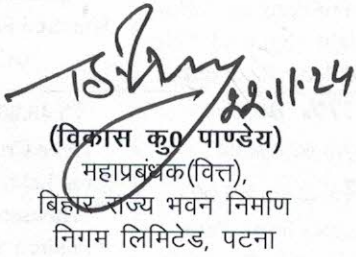 22.11.24
(विकास कु0 पाण्डेय)
महाप्रबंधक(वित्त),
बिहार राज्य भवन निर्माण
निगम लिमिटेड, पटना